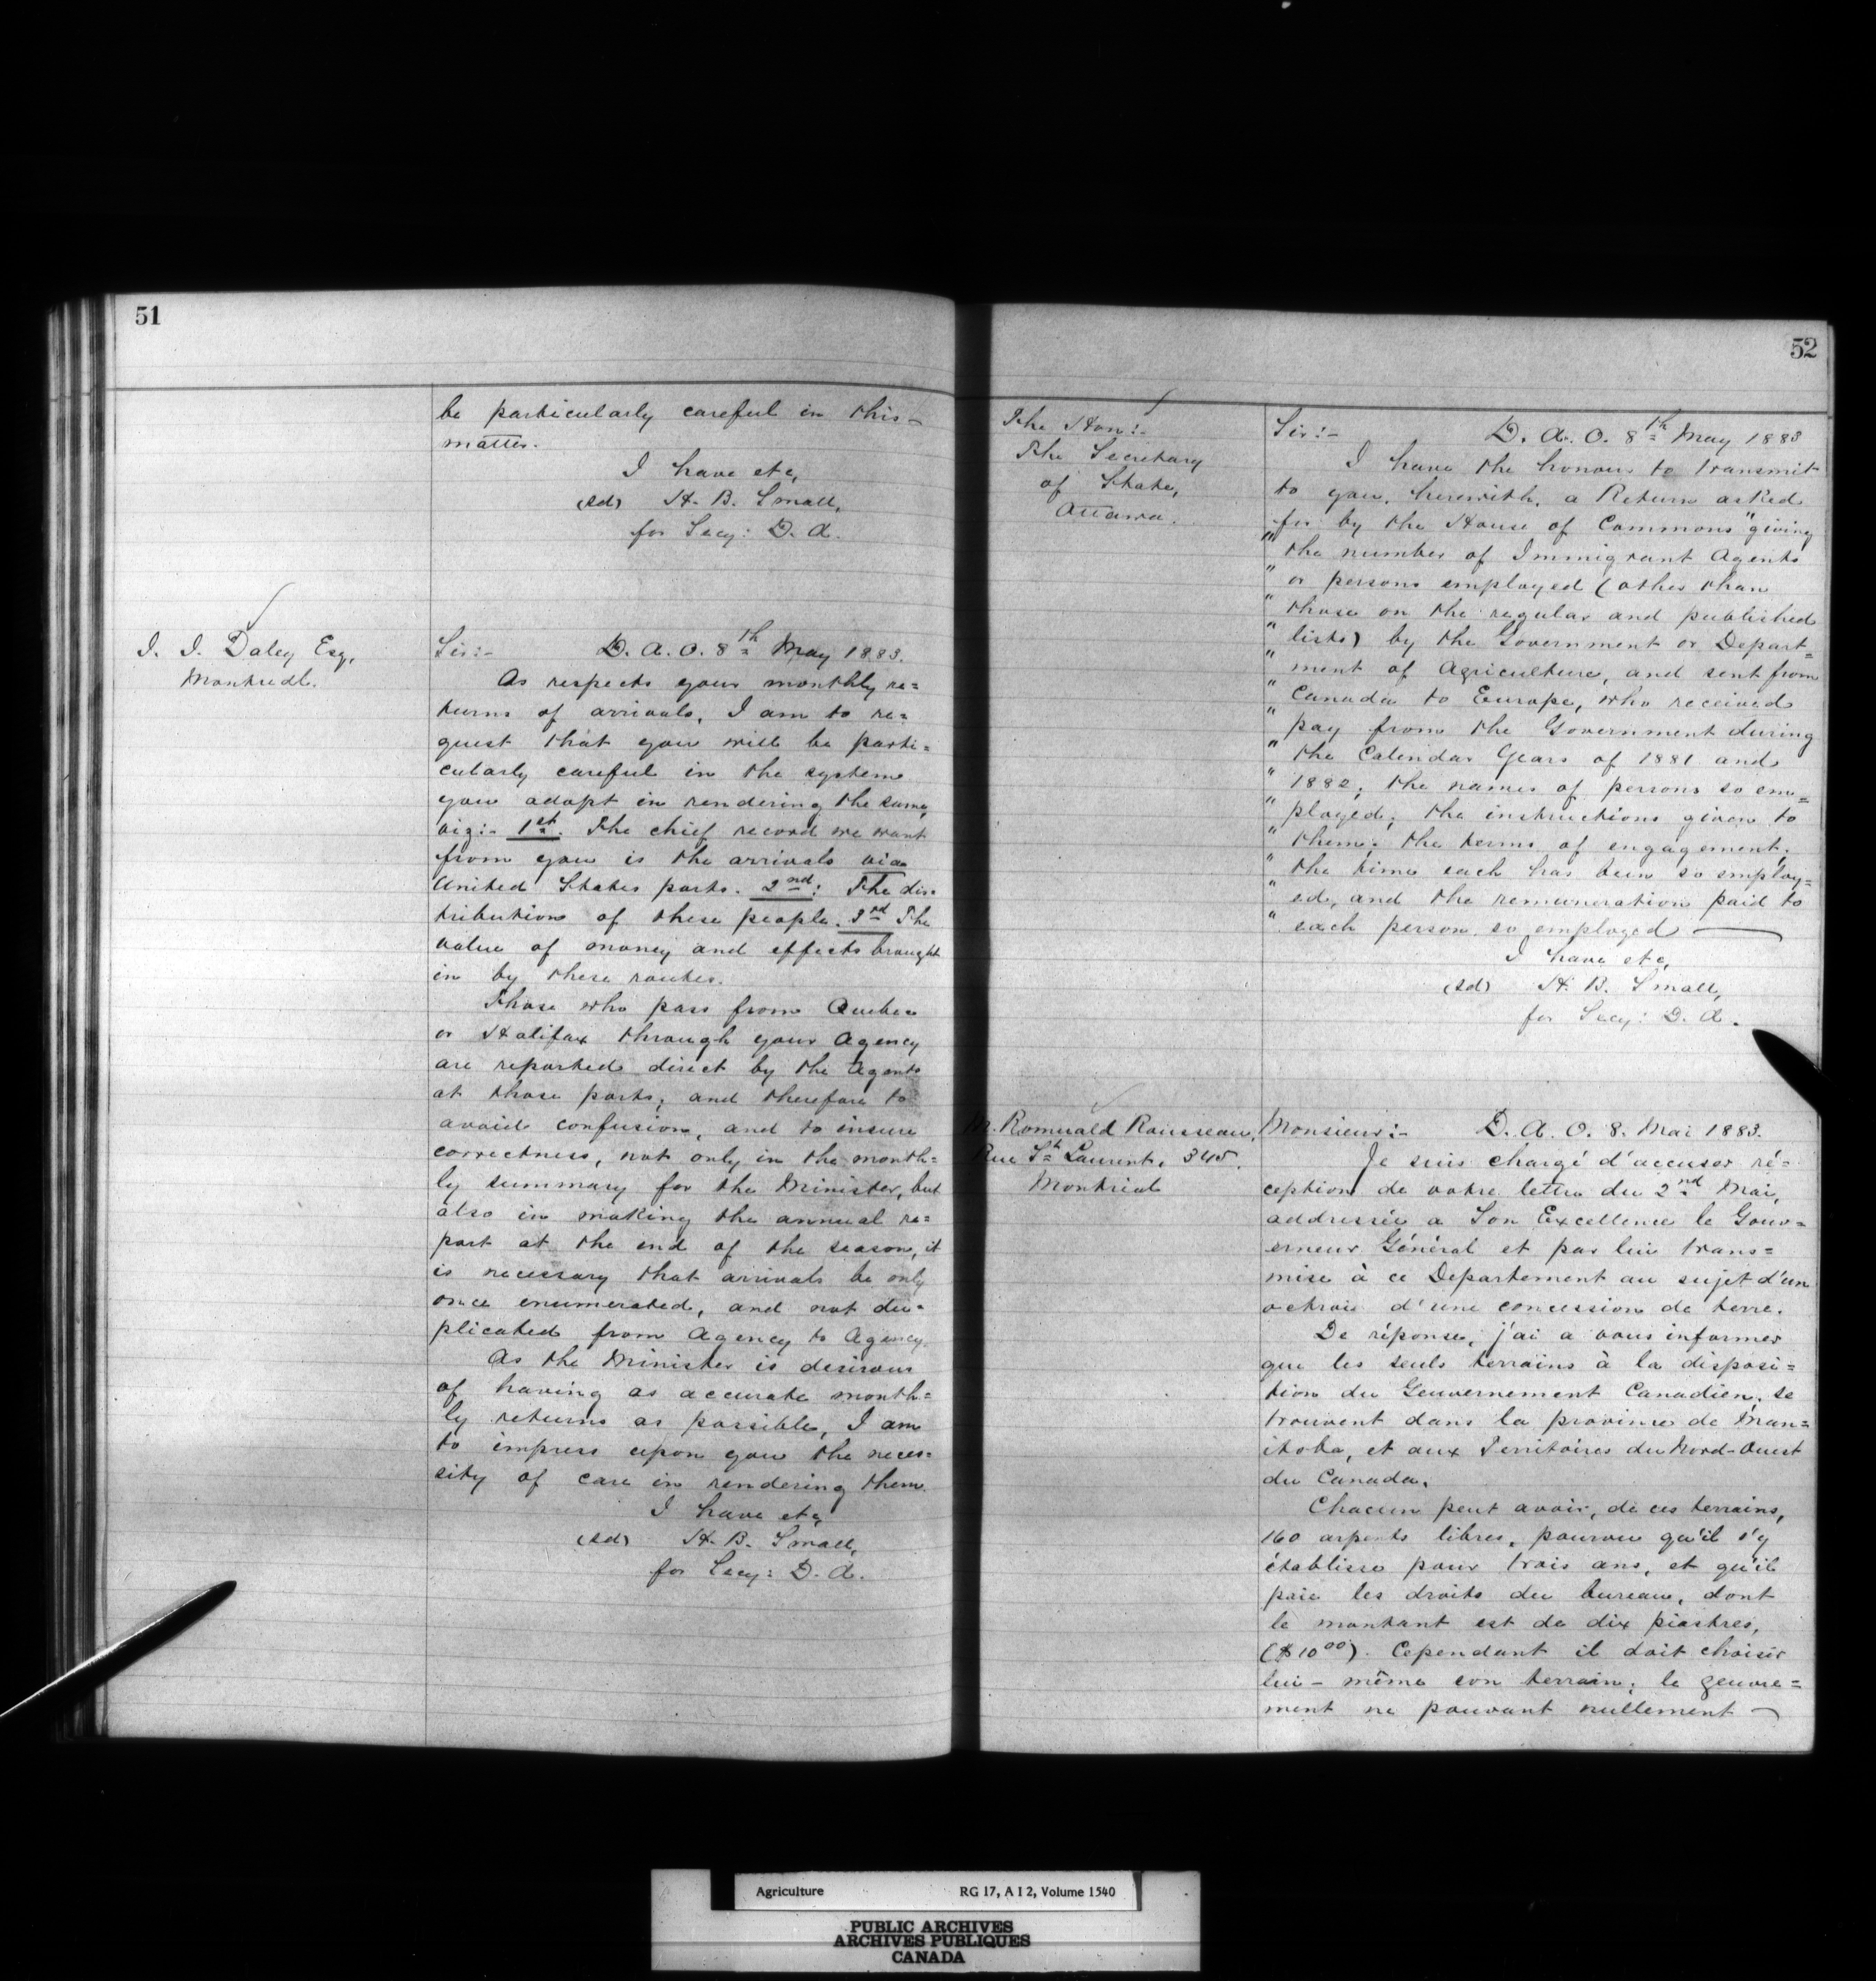 51
be particularly careful in this
matter.
I have etc,
(sd) H. B. Small,
for Secy: D. A.
J. J. Daley Esq,
Montreal.
Sir:- D. A. O. 8th May 1883.
As respects your monthly re=
turns of arrivals, I am to re=
quest that you will be parti=
cularly careful in the system
you adopt in rendering the same,
viz:- 1st. The chief record we want
from you is the arrivals via
United States ports. 2nd: The dis=
tribution of these people. 3rd The
value of money and effects brought
in by these routes.
Those who pass from Quebec
or Halifax through your Agency
are reported direct by the Agents
at those ports; and therefore to
avoid confusion, and to insure
correctness, not only in the month=
ly summary for the Minister, but
also in making the annual re=
port at the end of the season, it
is necessary that arrivals be only
once enumerated, and not du=
plicated from Agency to Agency.
As the Minister is desirous
of having as accurate month=
ly returns as possible, I am
to impress upon you the neces=
sity of care in rendering them.
I have etc,
(sd) H. B. Small,
for Secy: D. A.
52
The Hon:-
The Secretary
of State,
Ottawa.
Sir:- D. A. O. 8th May 1883
I have the honour to transmit
to you, herewith, a Return asked
for by the House of Commons "giving
" the number of Immigrant Agents
" or persons employed (other than
" those on the regular and published
" lists) by the Government or Depart=
" ment of Agriculture, and sent from
" Canada to Europe, who received
" pay from the Government during
" the Calendar Years of 1881 and
" 1882; the names of persons so em=
" ployed; the instructions given to
" them; the terms of engagement;
" the time each has been so employ=
" ed, and the remuneration paid to
" each person so employed
I have etc,
(sd) H. B. Small,
for Secy: D. A.
M. Romuald Rousseau,
Rue St Laurent, 345.
Montreal
Monsieur:- D. A. O. 8. Mai 1883.
Je suis chargé d'accuser ré=
ception de votre lettre du 2nd Mai,
addressée a Son Excellence le Gouv=
erneur Général et par lui trans=
mise à ce Departement au sujet d'un
octroi d'une concession de terre.
De réponse, j'ai a vous informer
que les seuls terrains à la disposi=
tion du Gouvernement Canadien, se
trouvent dans la province de Man=
itoba, et aux Territoires du Nord-Ouest
du Canada.
Chacun peut avoir, de ces terrains,
160 arpents libres, pourvu qu'il s'y
établisse pour trois ans, et qu'il
paie les droits du bureau, dont
le montant est de dix piastres,
($10 00). Cependant il doit choisir
lui-même son terrain; le gouve=
ment ne pouvant nullement
Agriculture RG 17, A I 2, Volume 1540
PUBLIC ARCHIVES
ARCHIVES PUBLIQUES
CANADA